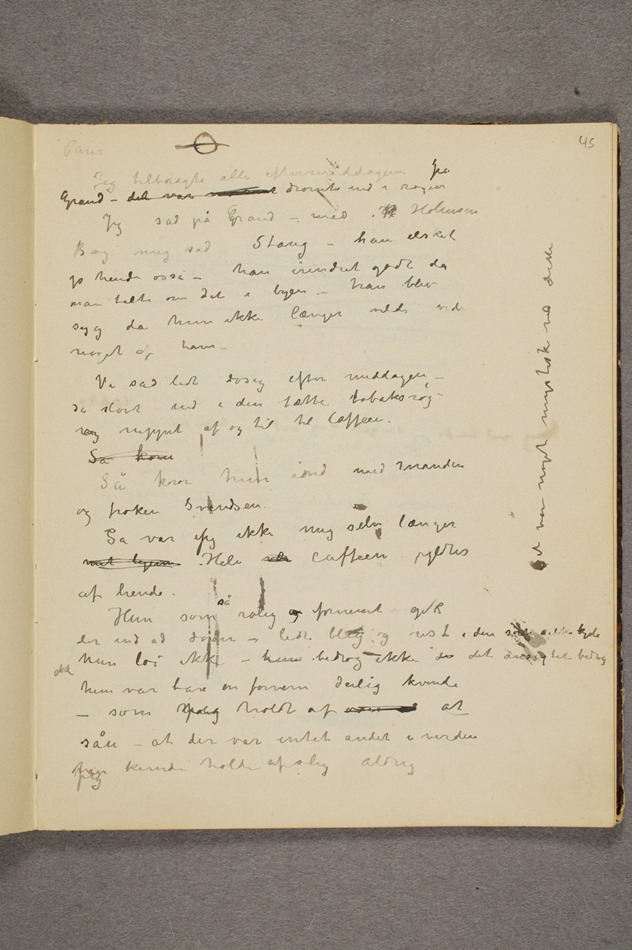 45
Paris
Jeg tilbragte alle eftermiddagene på
Grand – det var drømte ind i røgen
Jeg sad på Grand – med Holmsen
Bag mig sad Stang – han elsket
jo hende også – han ændret godt da
man talte om det i byen – han blev
syg da hun ikke længer vilde vide
noget af ham –
Vi sad lidt døsig efter middagen –
så stort ind i den tætte tobaksrøg –
røg nippet af og til til Caffeen.
Så kom
Så kom hun ind med manden
og frøken Svendsen.
Så var jeg ikke mig selv længer
Hele Caffeen fyldtes
af hende.
Hun som så rolig og fornemt gik
der ind ad døren – lidt bleg og
hun løi ikke – hun bedrog ikke det ansigtet bedrog
ikke
hun var bare en fornem deilig kvinde
– som holdt af at
såu – at der var intet andet i verden
jeg kunde holde af slig aldrig
Det var noget mystisk ved disse